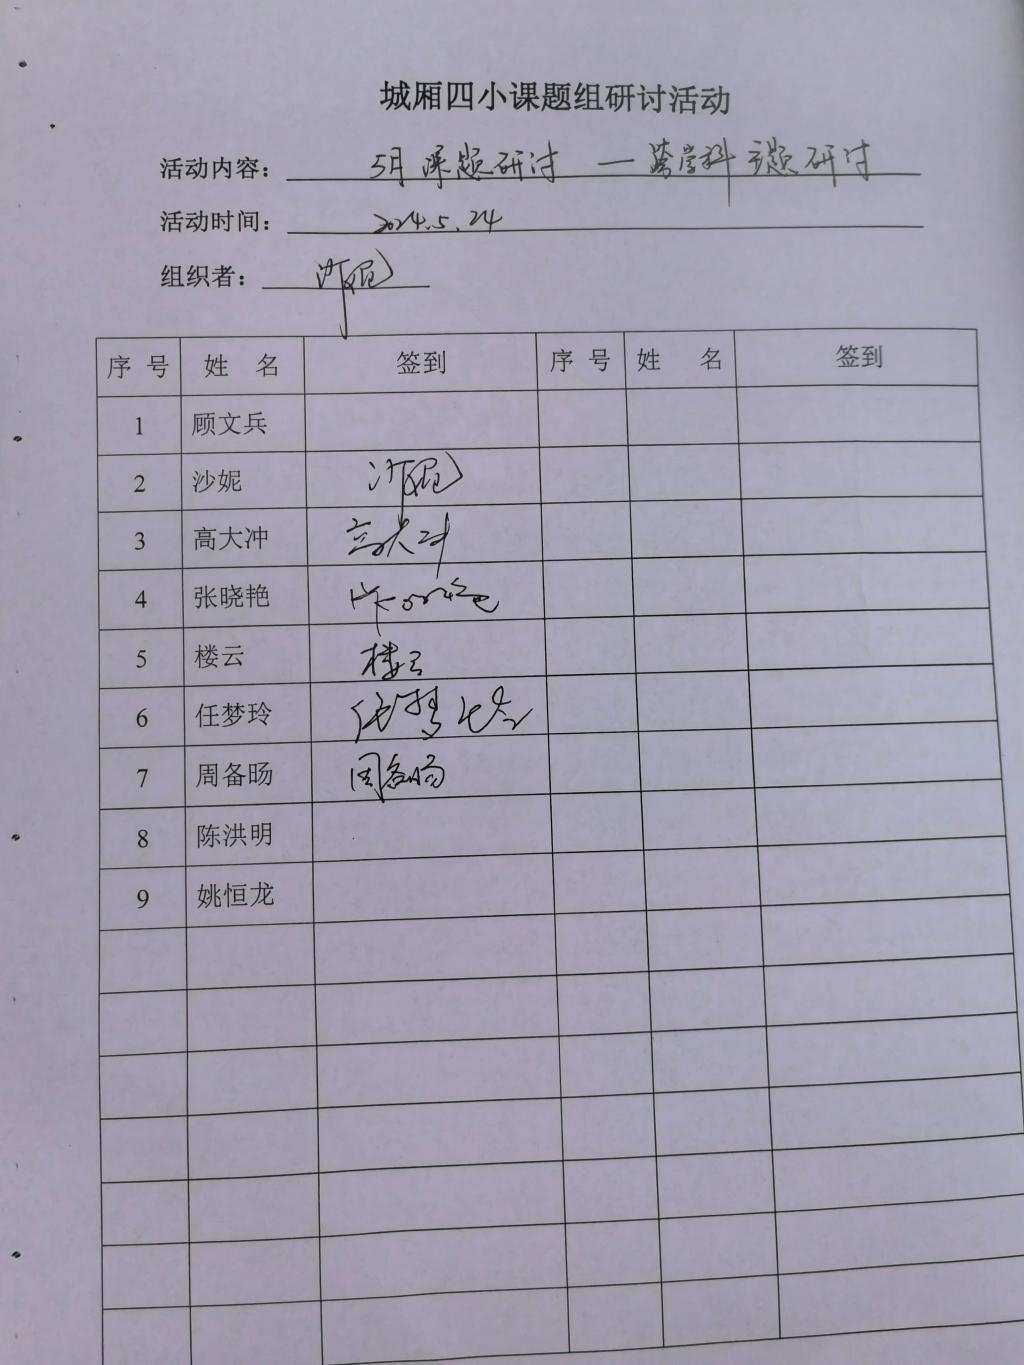 城厢四小课题组研讨活动
活动内容： 5月课题研讨 —跨学科主题研讨
活动时间： 2024.5.24
组织者： 沙妮
序号 姓名 签到 序号 姓名 签到
1 顾文兵
2 沙妮 沙妮
3 高大冲 高大冲
4 张晓艳 张晓艳
5 楼云 楼云
6 任梦玲 任梦玲
7 周备旸 周备旸
8 陈洪明
9 姚恒龙